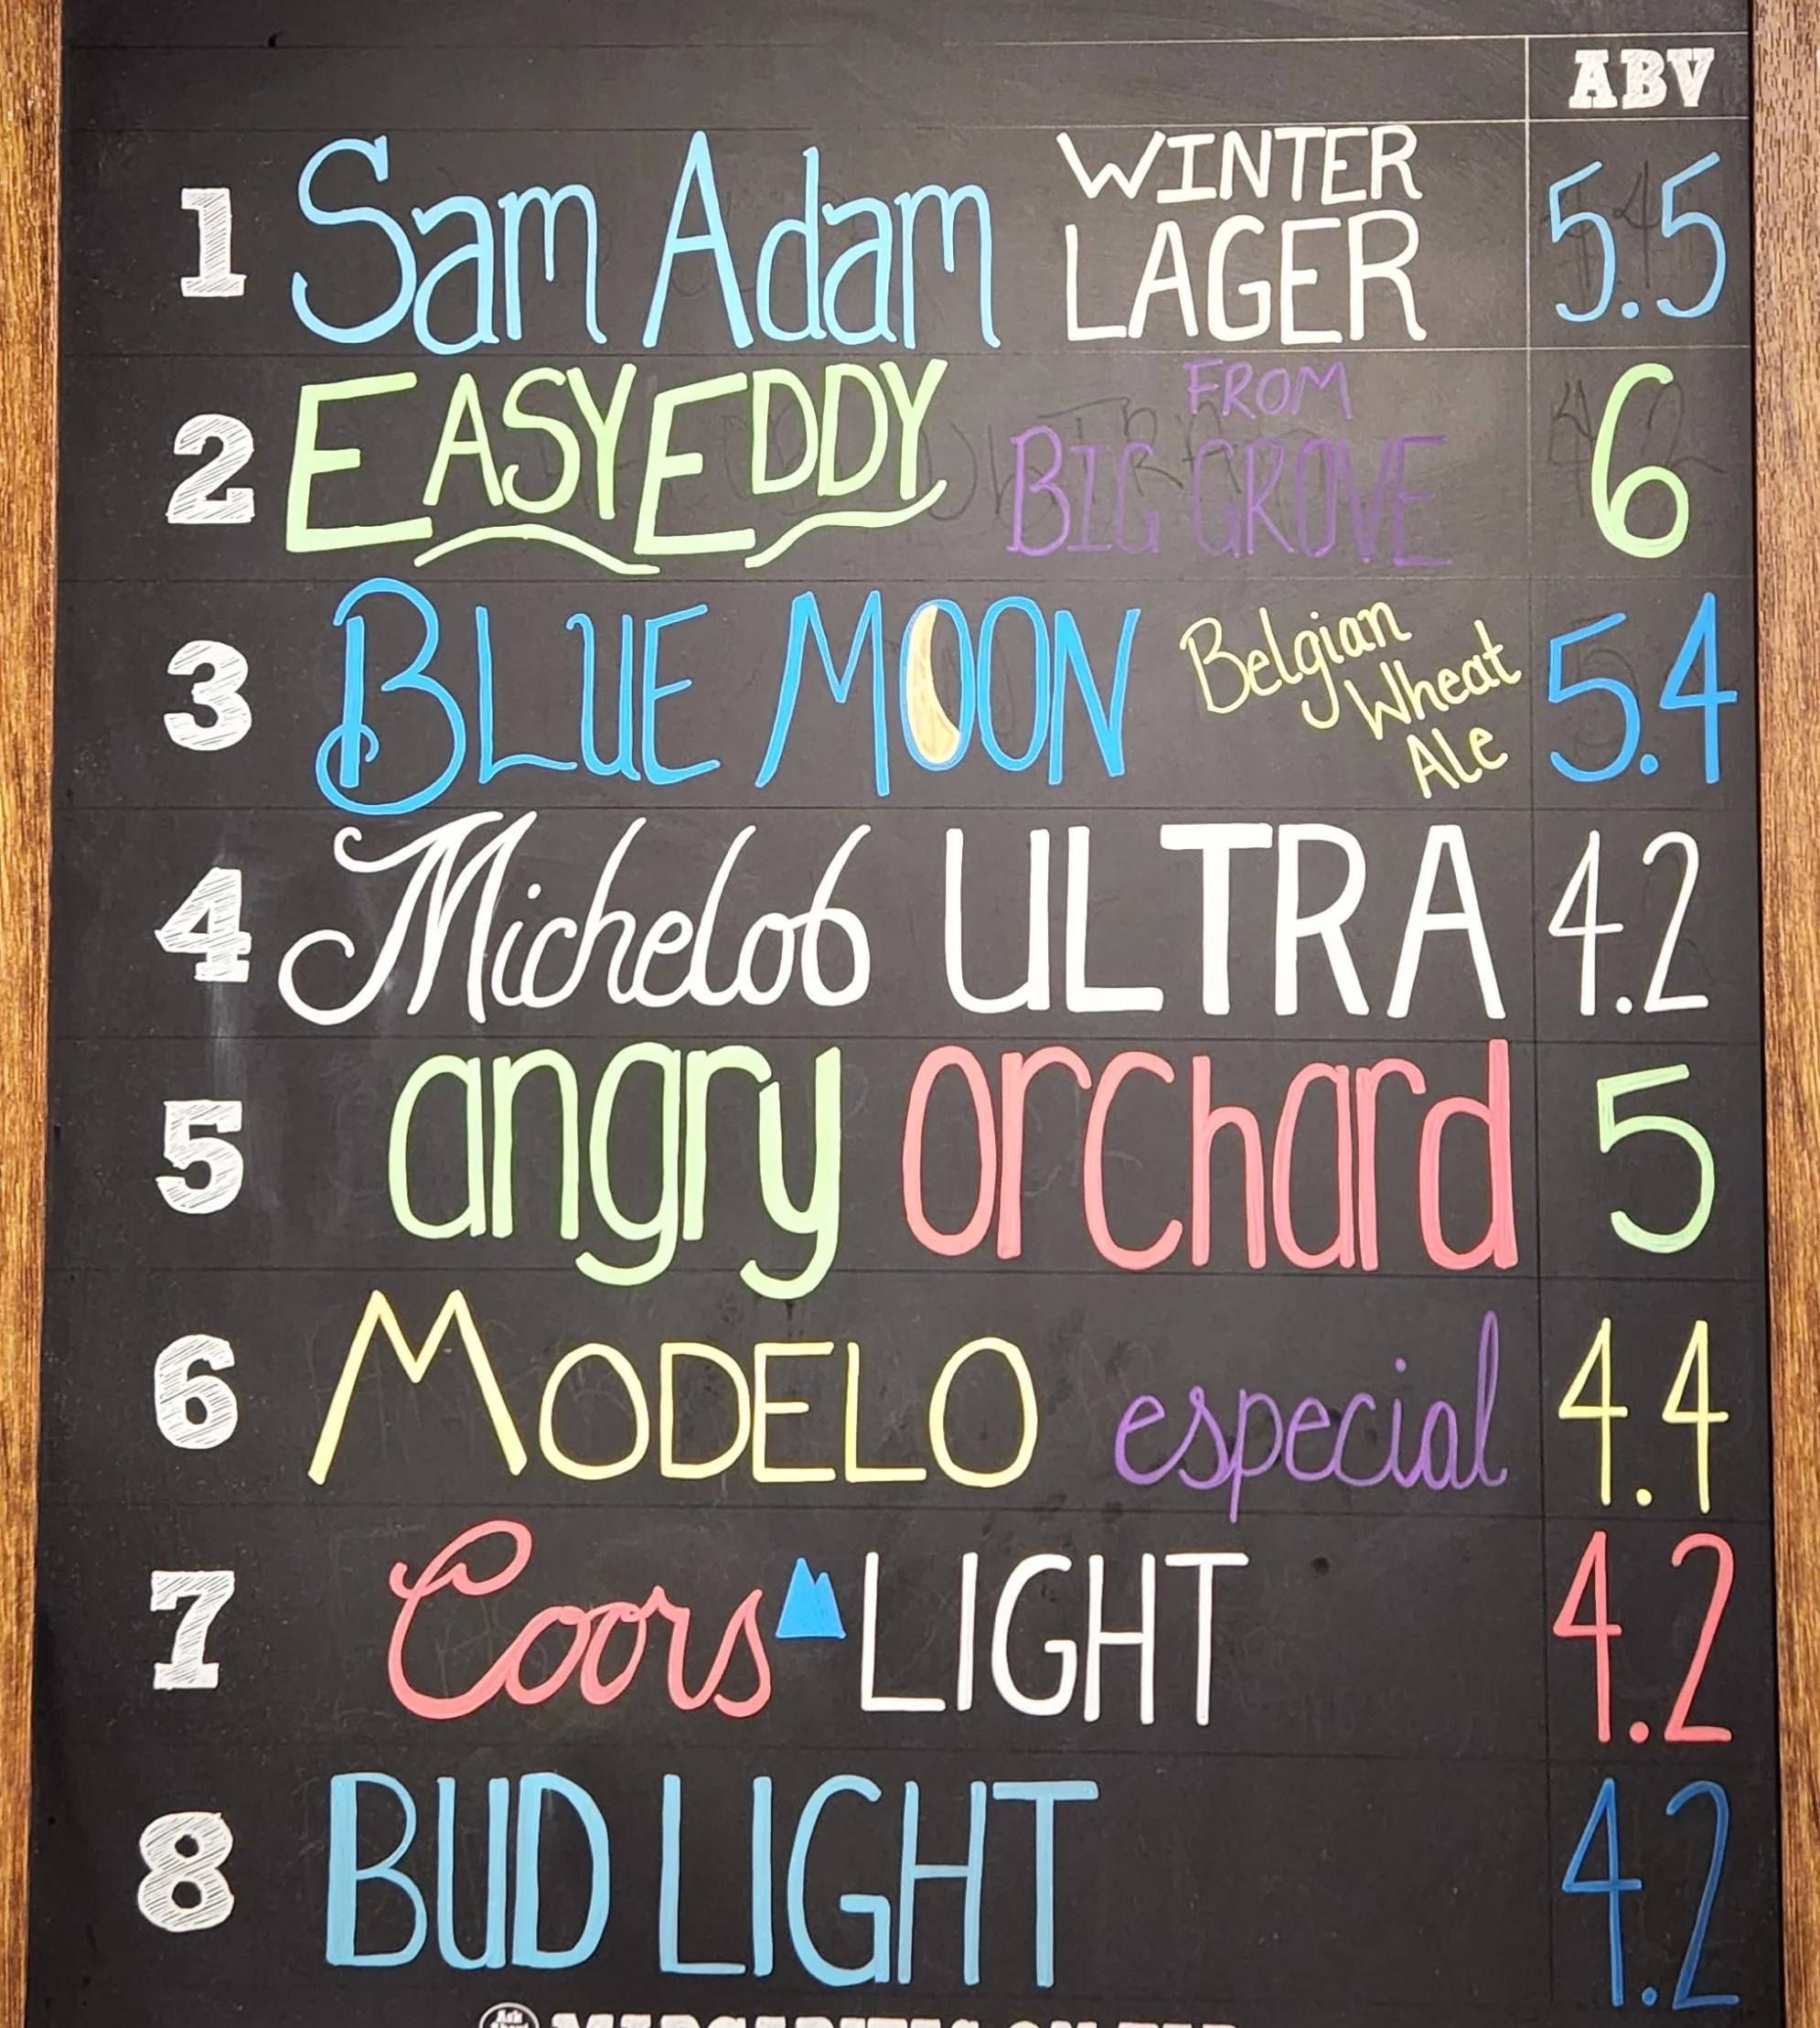 ABV
1 Sam Adam WINTER LAGER 5.5
2 EASY EDDY FROM BIG GROVE 6
3 BLUE MOON Belgian Wheat Ale 5.4
4 Michelob ULTRA 4.2
5 angry orchard 5
6 MODELO especial 4.4
7 Coors LIGHT 4.2
8 BUD LIGHT 4.2
Ask